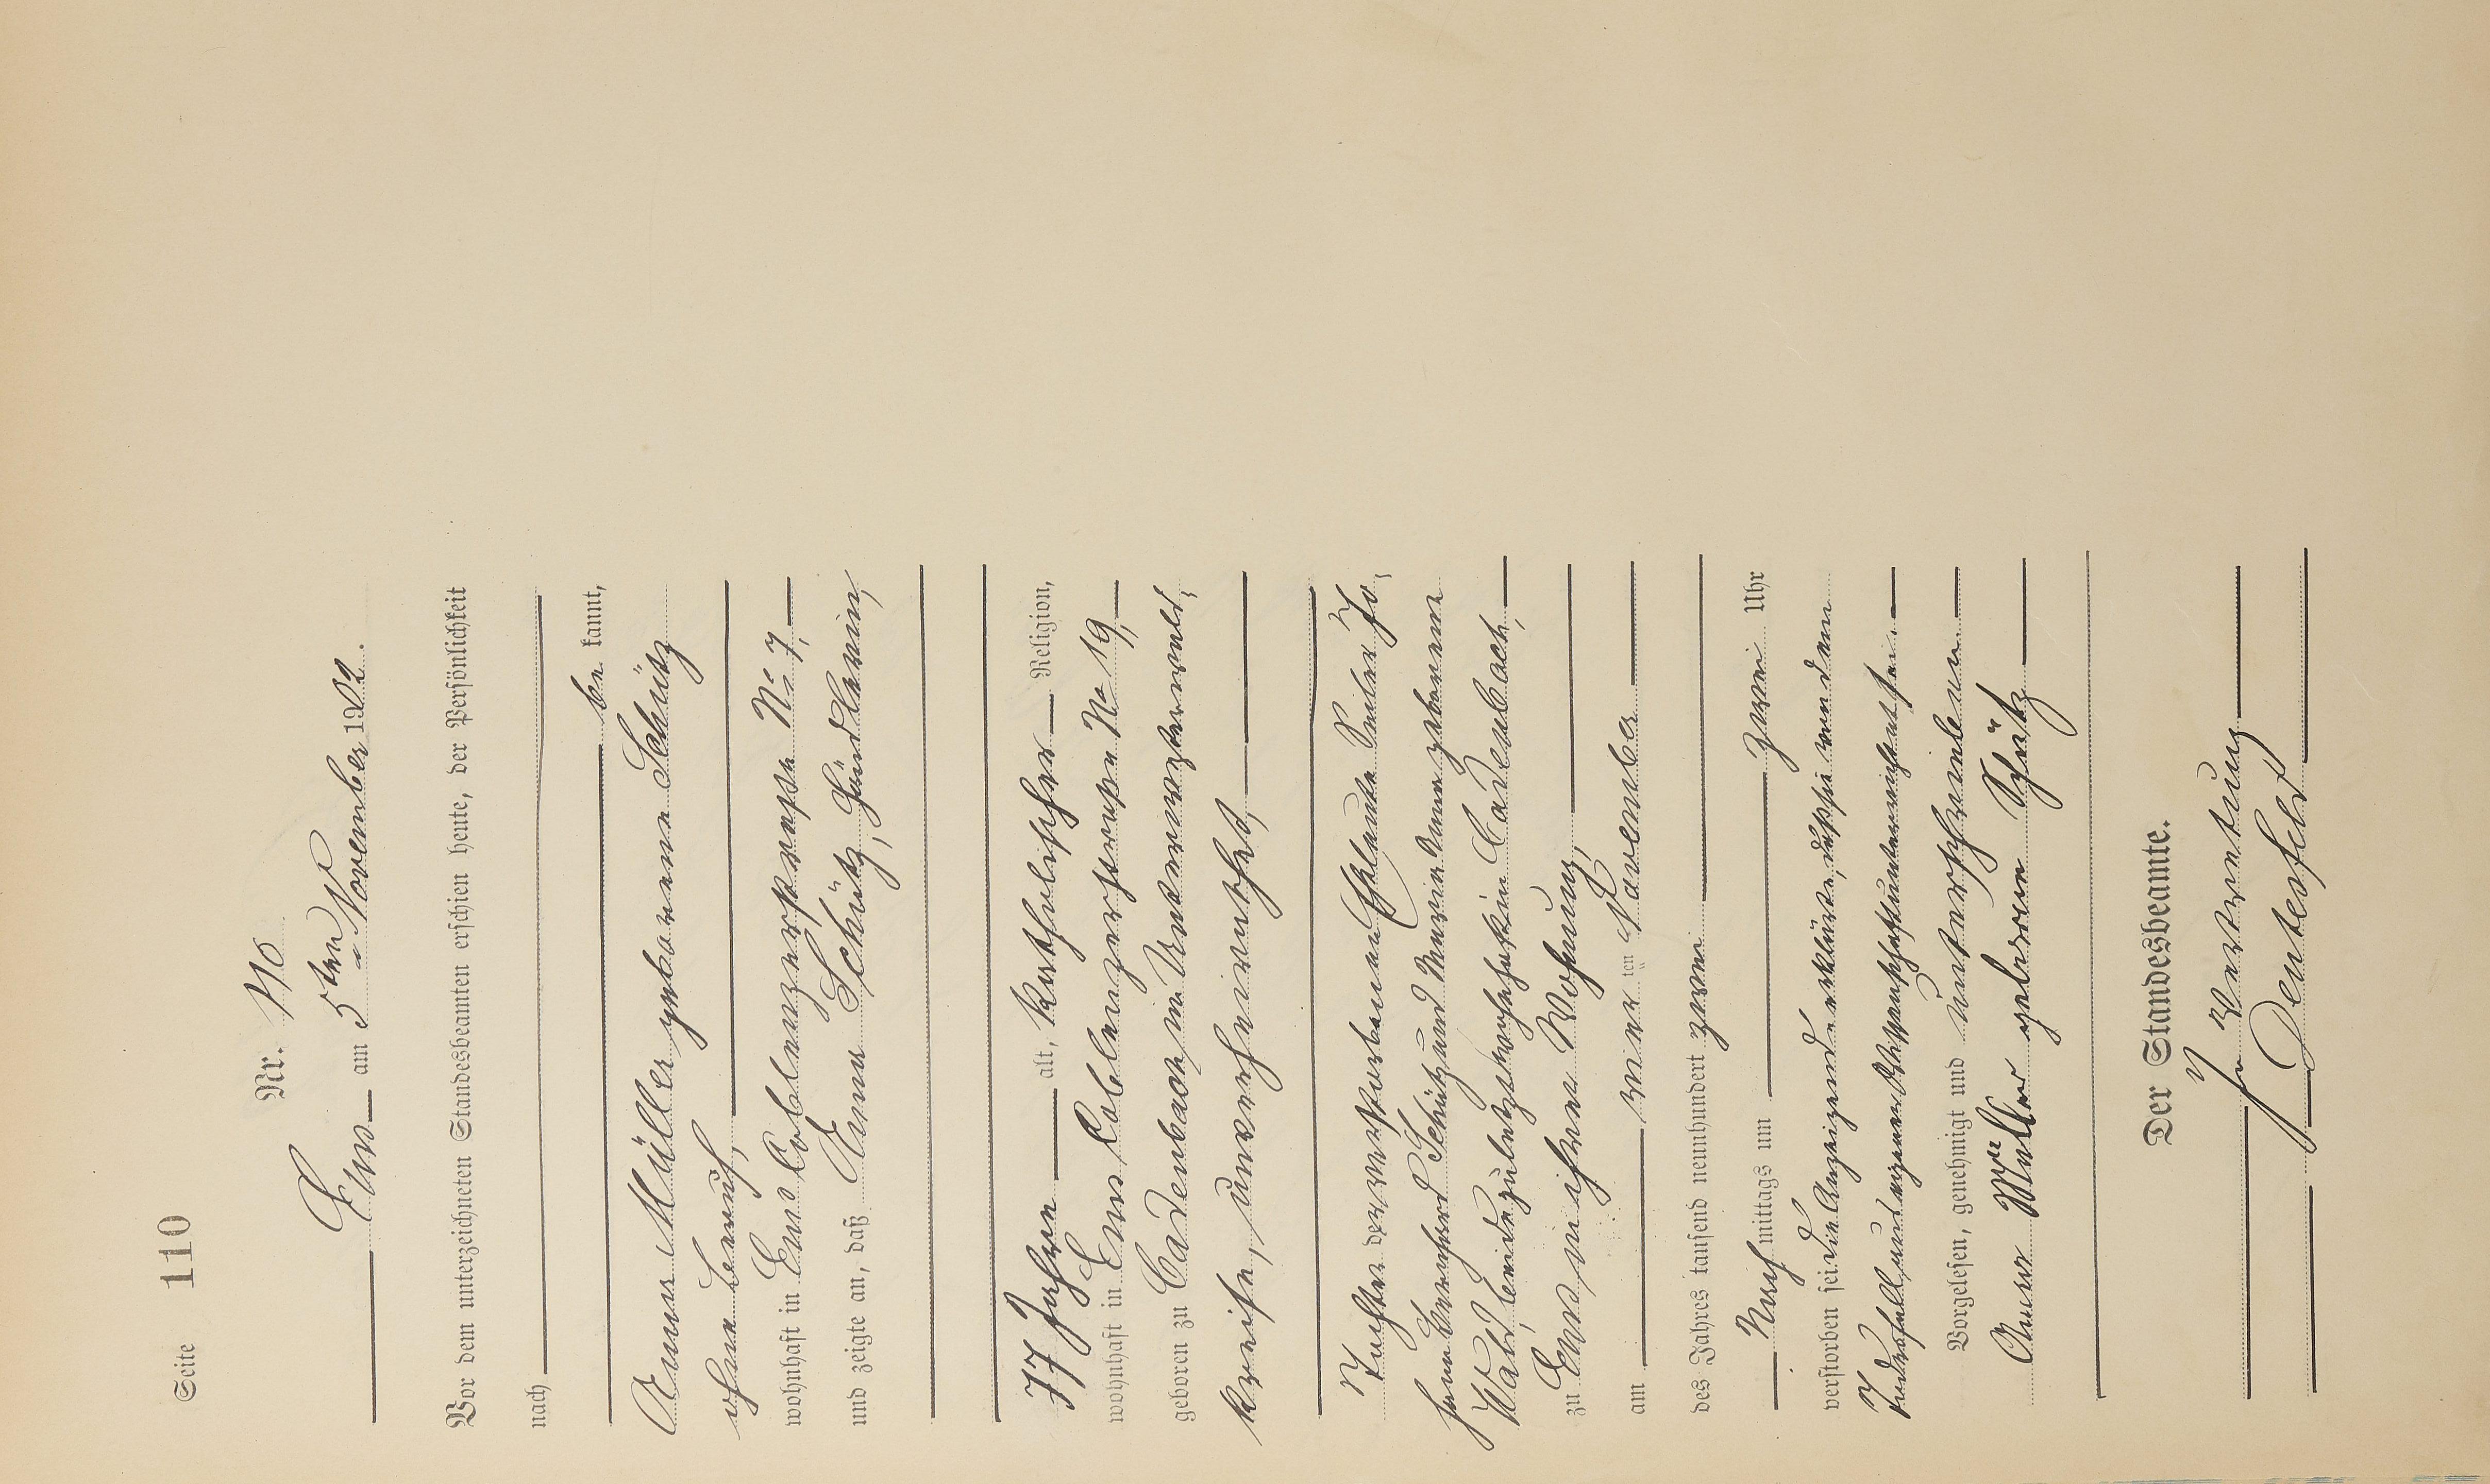 Seite 110
Nr. 110
Ems am 5ten November 1902.
Vor dem unterzeichneten Standesbeamten erschien heute, der Persönlichkeit
nach
be kannt,
Anna Müller geborene Schütz
ohne Beruf,
wohnhaft in Ems Coblenzerstrasse No 7,
und zeigte an, daß Anna Schütz, Händlerin,
77 Jahre alt, katholischer Religion,
wohnhaft in Ems Coblenzerstrasse No 19,
geboren zu Cadenbach im Unterwesterwald,
kreise, unverheirathet,
Tochter der verstorbenen Eheleute Jo,
hann Schütz und Maria Anna geborene
Wald, beide zuletzt wohnhaft in Cadenbach,
zu Ems in ihrer Wohnung,
am vier ten November
des Jahres tausend neunhundert zwei
Nach mittags um zwei Uhr
verstorben sei. Die Anzeigende erklärte, daß sie von dem
Todesfall aus eigener Wissenschaft unterrichtet sei.
Vorgelesen, genehmigt und unterschrieben
Anna Müller geborene Schütz
Der Standesbeamte.
In Vertretung